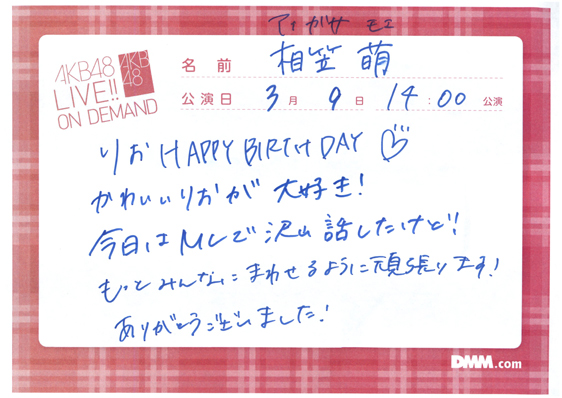 アイガサ モエ
AKB48
LIVE!!
ON DEMAND
AKB
48
名前 相笠 萌
公演日 3月 9日 14:00 公演
りお HAPPY BIRTHDAY ♡
かわいいりおが 大好き!
今日はMCで沢山 話したけど!!
もっとみんなにまわせるように頑張ります!
ありがとうございました!
DMM.com